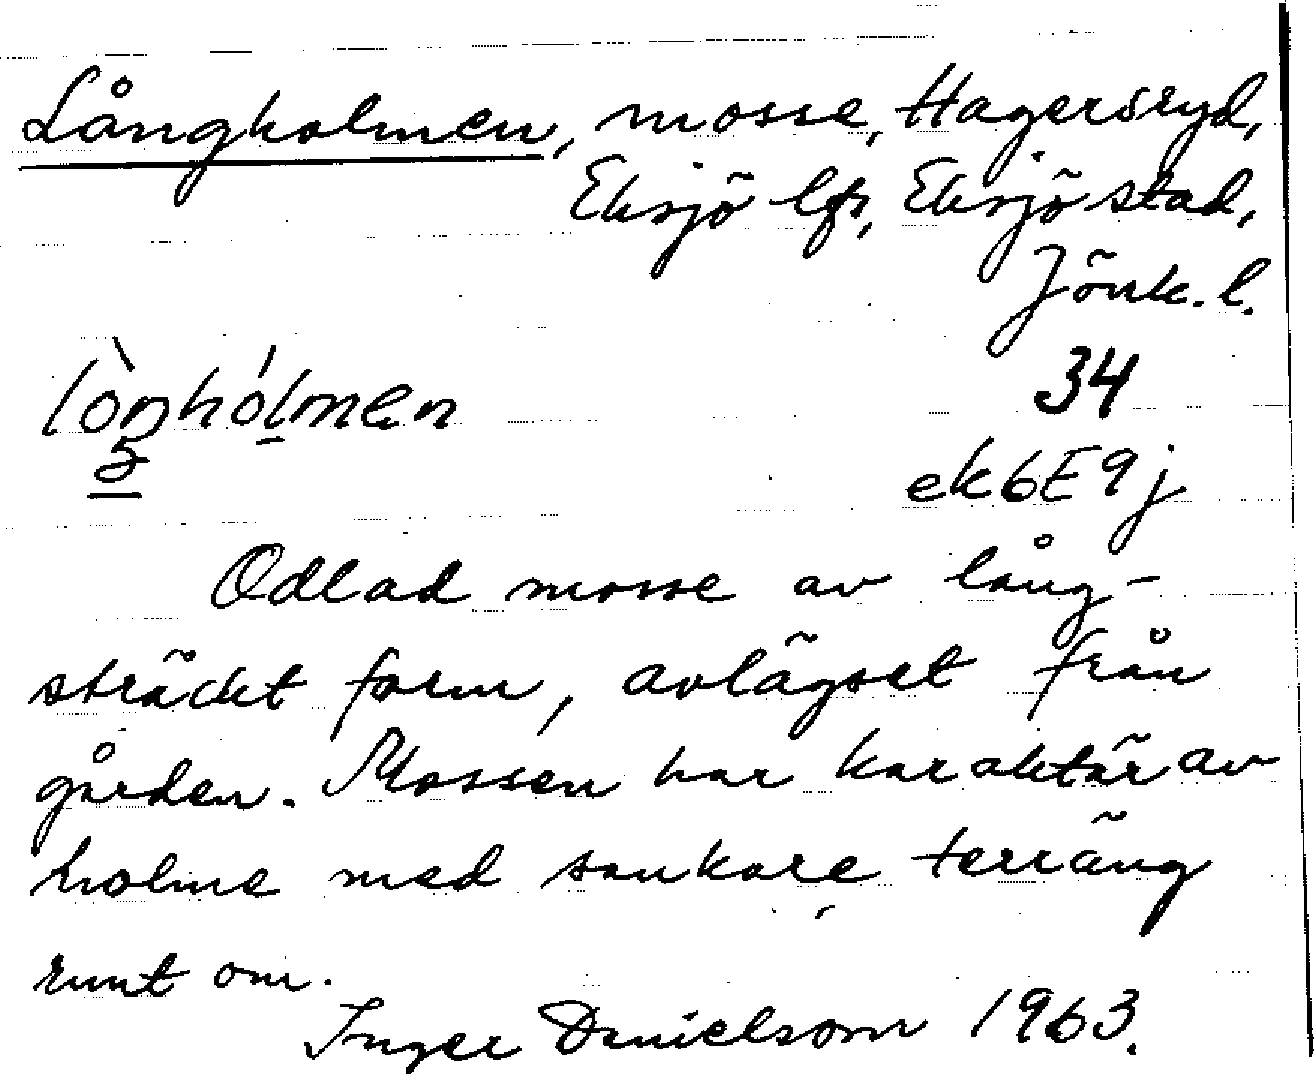 Långholmen, mosse, Hagersryd,
Eksjö lfs, Eksjö stad,
Jönk. l.
34
ek6E9j
Odlad mosse av lång-
sträckt form, avlägset från
gården. Mossen har karaktär av
holme med sankare terräng
runt om.
Inger Danielsom 1963.